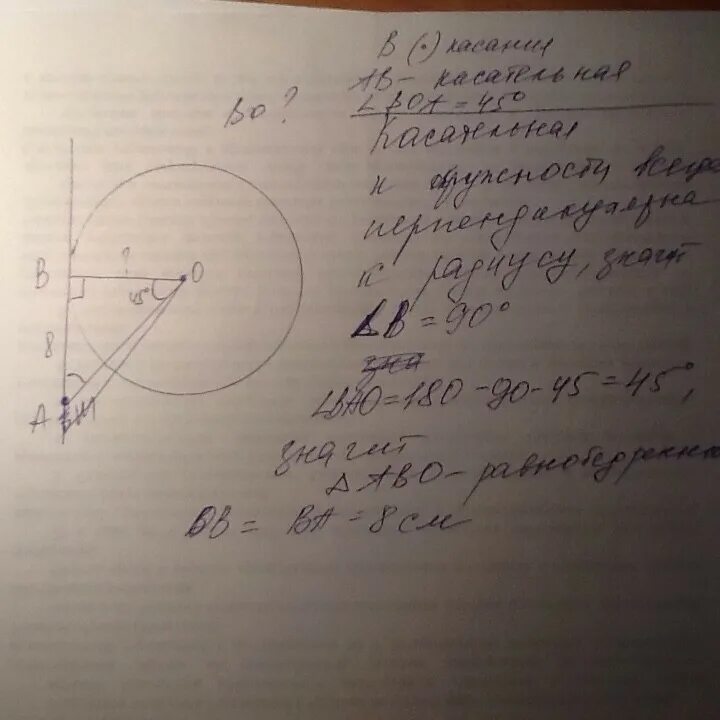 В (•) касания
АВ - касательная
∠BOA = 45°
Во ?
Касательная
к окружности всегда
перпендикулярна
к радиусу, значит
∠B = 90°
∠BAO = 180 - 90 - 45 = 45°,
значит
△ ABO - равнобедренный
OB = BA = 8 см
B
?
O
45°
8
A